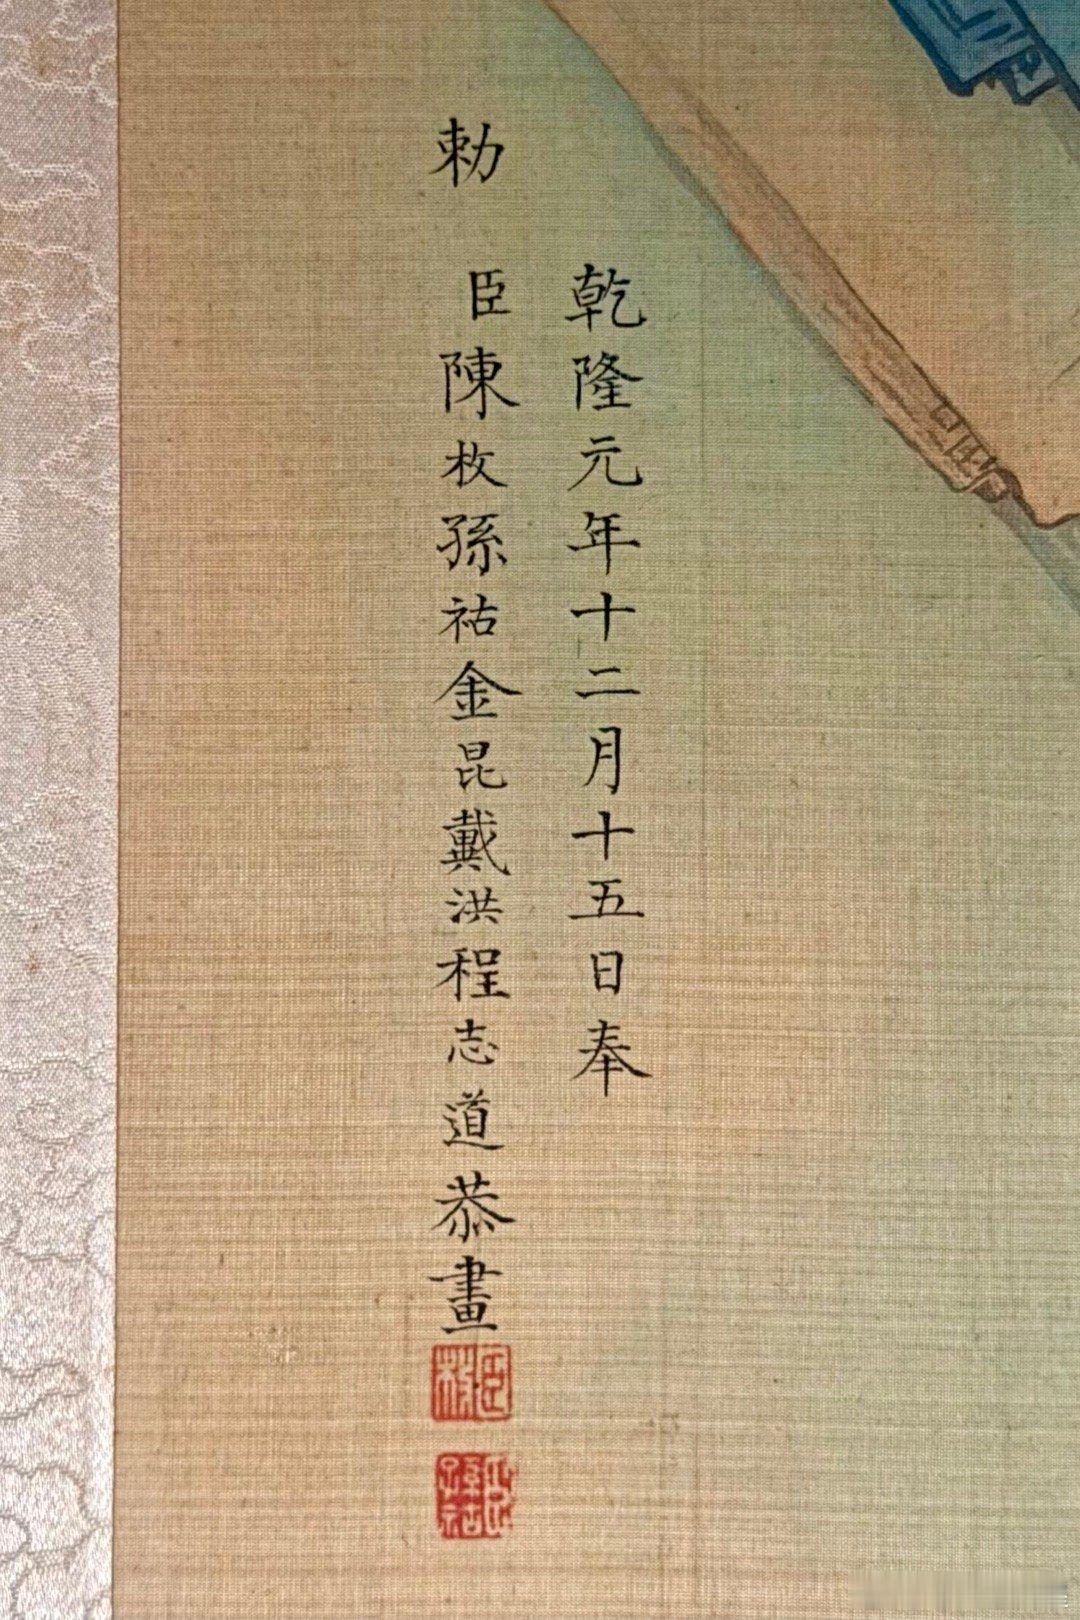 乾隆元年十二月十五日奉
勅
臣陳枚孫祜金昆戴洪程志道恭畫
臣枚
臣孫祜